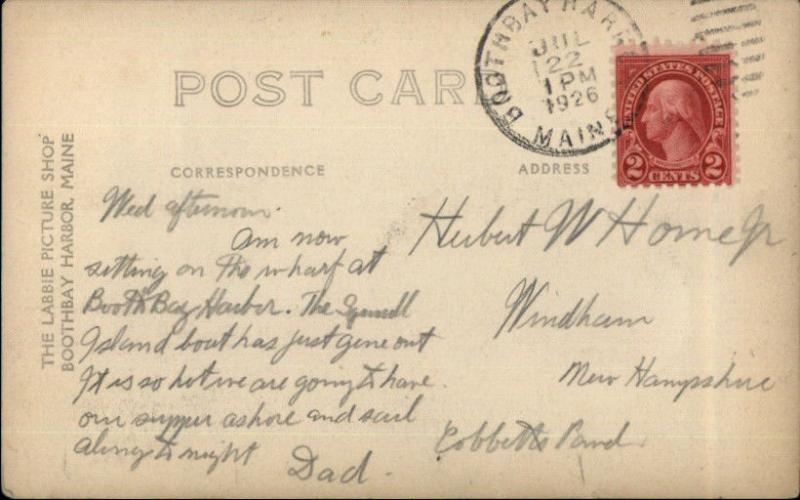 BOOTHBAY HARB
JUL
22
1 PM
1926
MAINE
UNITED STATES POSTAGE
2 CENTS 2
POST CAR
THE LABBIE PICTURE SHOP
BOOTHBAY HARBOR, MAINE
CORRESPONDENCE
ADDRESS
Wed afternoon.
am now
sitting on the wharf at
Booth Bay Harbor. The Squirrell
Island boat has just gone out
It is so hot we are going to have
our supper ashore and sail
along to night
Dad.
Herbert W Horne Jr
Windham
New Hampshire
Cobbetts Pond